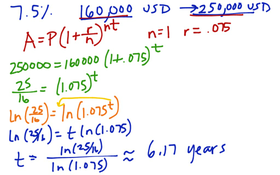 7.5% 160,000 USD → 250,000 USD
A = P(1 + r/n)^nt n=1 r = .075
250000 = 160000 (1+.075)^t
25/16 = (1.075)^t
ln(25/16) = ln(1.075^t)
ln(25/16) = t ln(1.075)
t = ln(25/16)/ln(1.075) ≈ 6.17 years